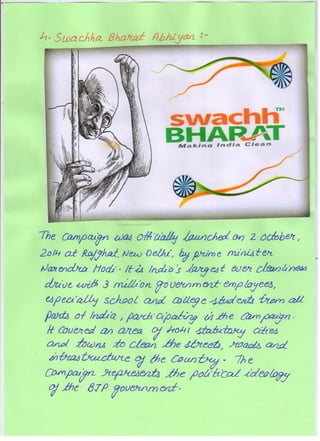 4. Swachha Bharat Abhiyan :-
swachh TM
BHARAT
Making India Clean
The Campaign was officially launched on 2 october,
2014 at Rajghat, New Delhi, by prime minister
Narendra Modi. It is India's largest ever cleanliness
drive with 3 million government employees,
especially school and college students from all
parts of India, participating in the campaign.
It covered an area of 4041 statutory cities
and towns to clean the streets, roads and
infrastructure of the Country. The
Campaign represents the political ideology
of the BJP government.